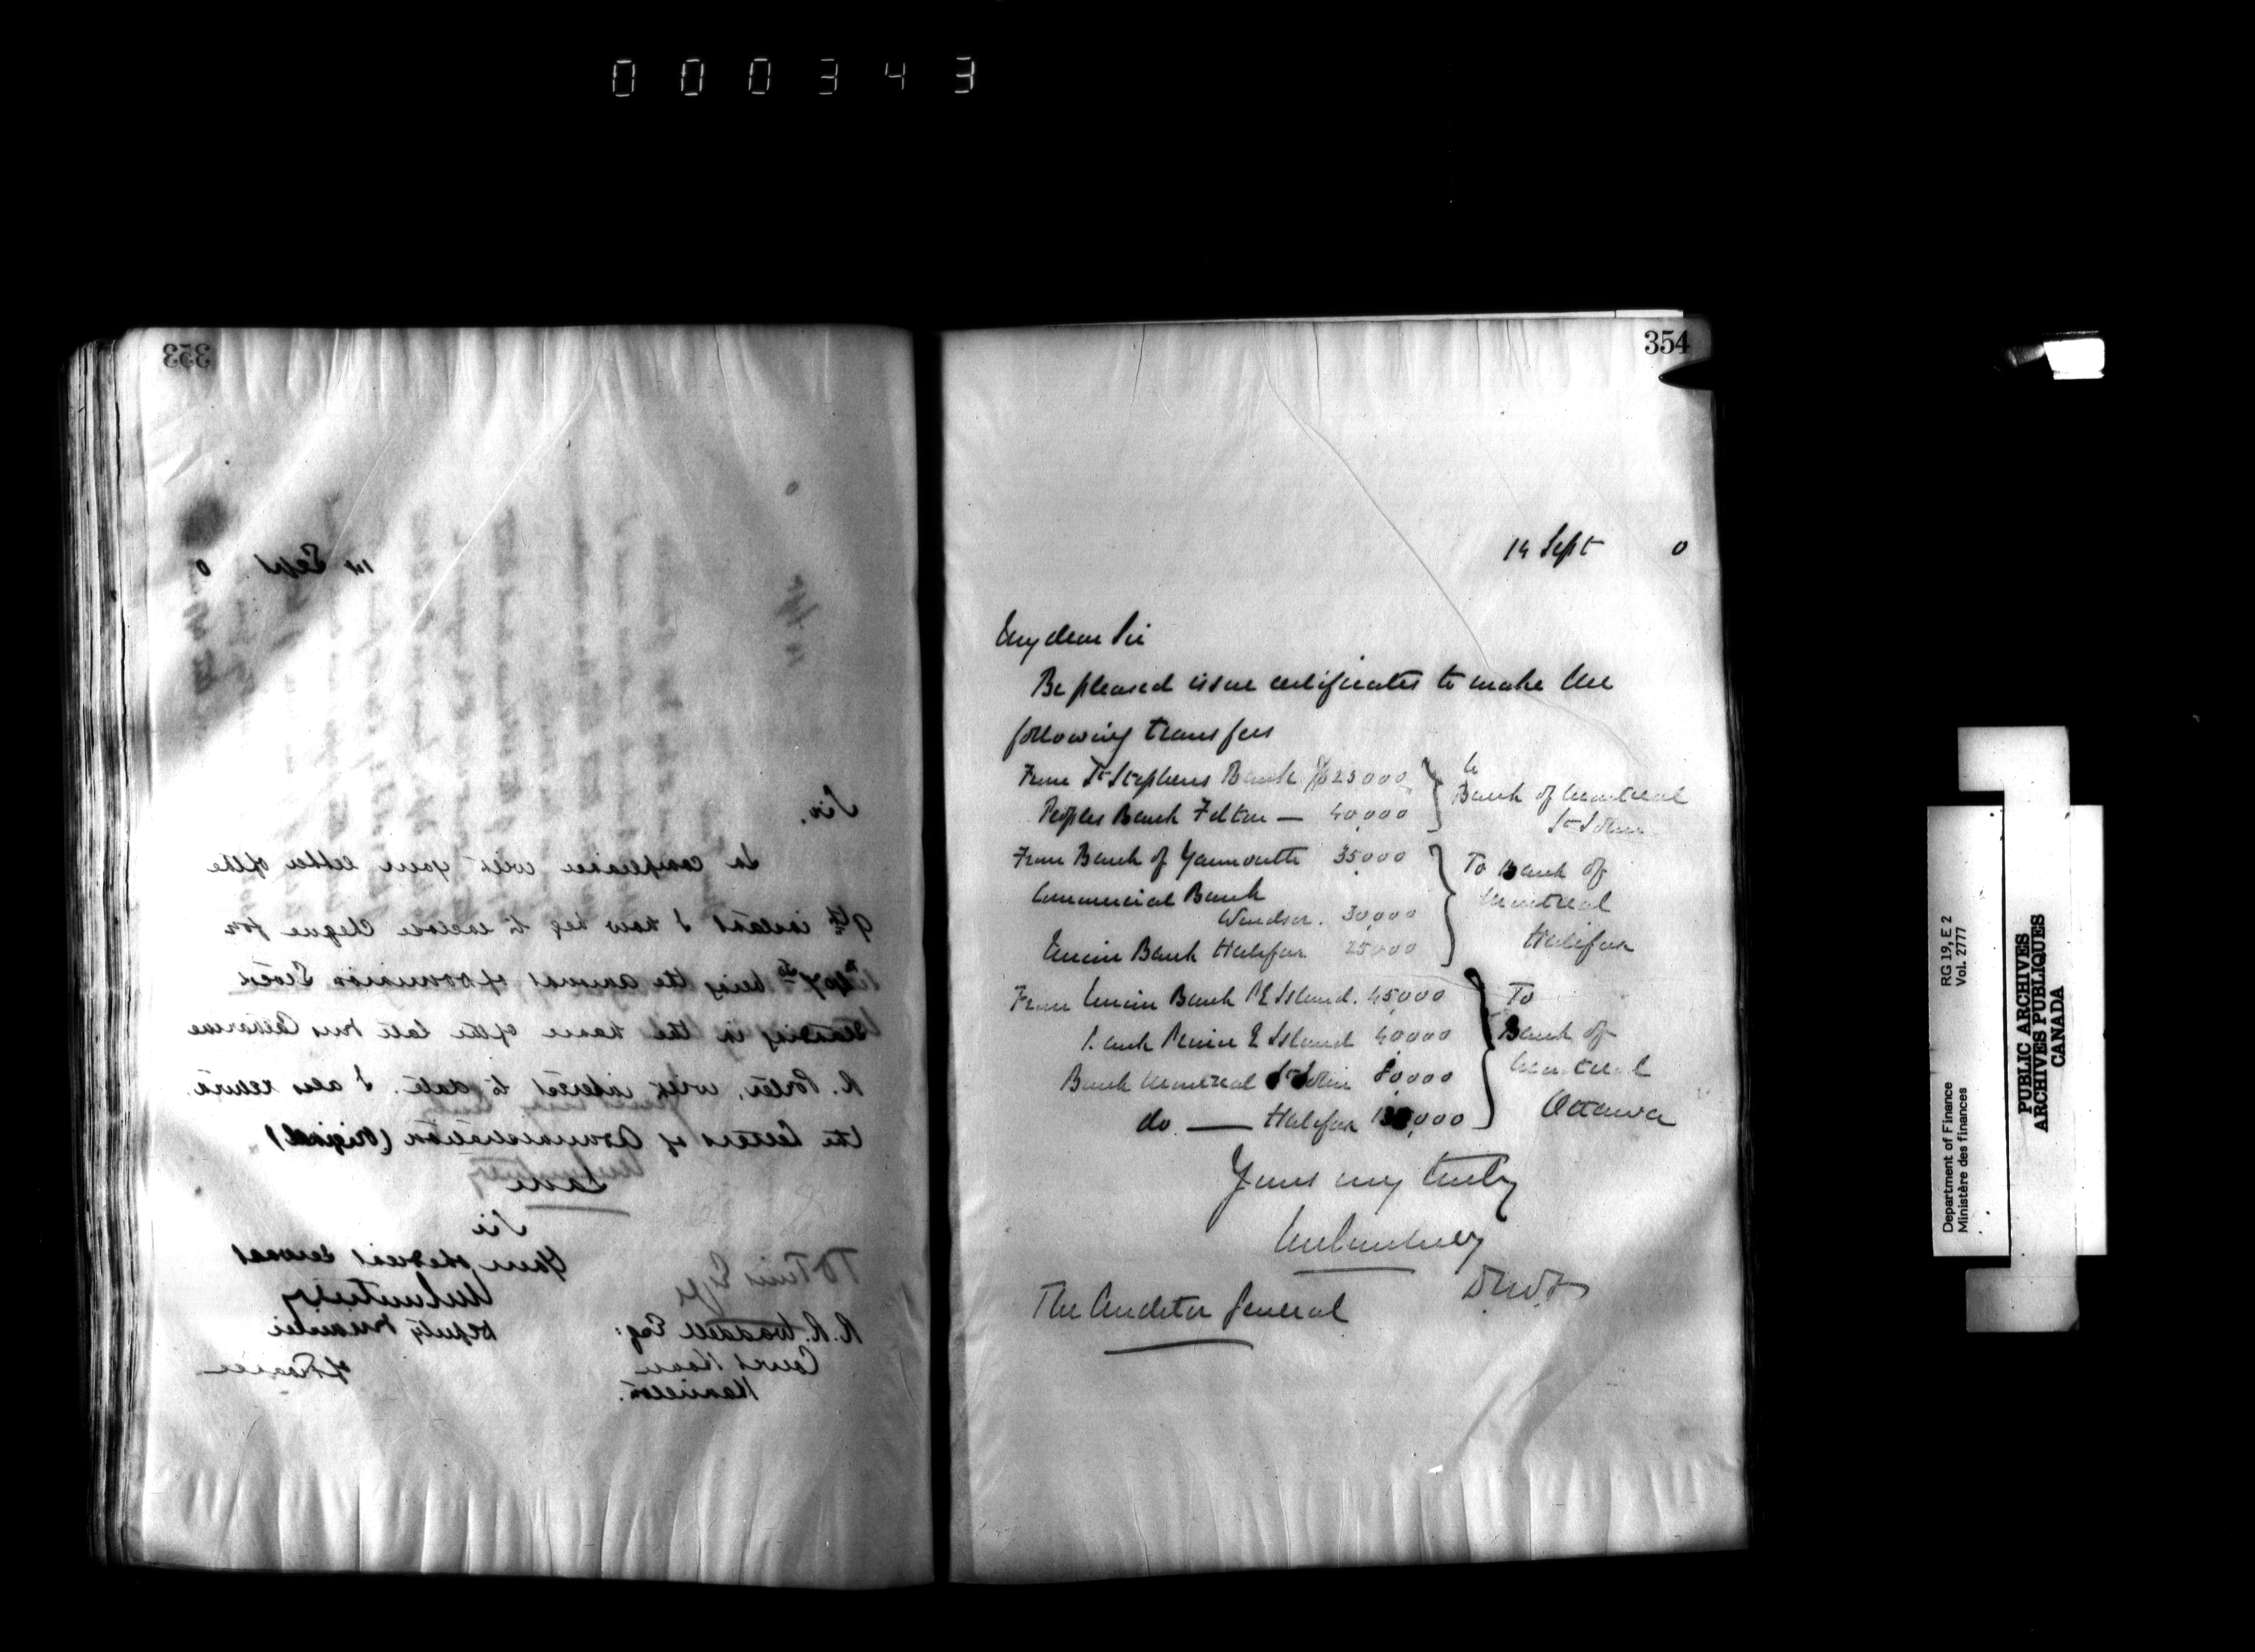 000343
353
14 Sept 0
Sir.
In compliance with your letter of the
9th instant I now beg to enclose cheque for
being the amount of Dominion Stock
standing in the name of the late Mrs Catharine
R. Porter, with interest to date. I also return
the Letters of Administration (Original)
Sir
Your obedient servant
Deputy Minister
of Finance
R. R. Waddell Esq:
Court House
Hamilton.
354
14 Sept 0
My dear Sir
Be pleased issue certificates to make the
following transfers
From St Stephens Bank $25000 } to
Bank of Montreal
St John
Peoples Bank F'cton — 40,000
From Bank of Yarmouth 35,000 } To Bank of
Montreal
Halifax
Commercial Bank
Windsor. 30,000
Union Bank Halifax 25,000
From Union Bank PE Island. 45,000 } To
Bank of
Montreal
Ottawa
Bank Prince E Island 40000
Bank Montreal St John 80,000
do — Halifax
Yours very truly
JMCourtney
DMofF
The Auditor General
Department of Finance
Ministère des finances
RG 19, E 2
Vol. 2777
PUBLIC ARCHIVES
ARCHIVES PUBLIQUES
CANADA